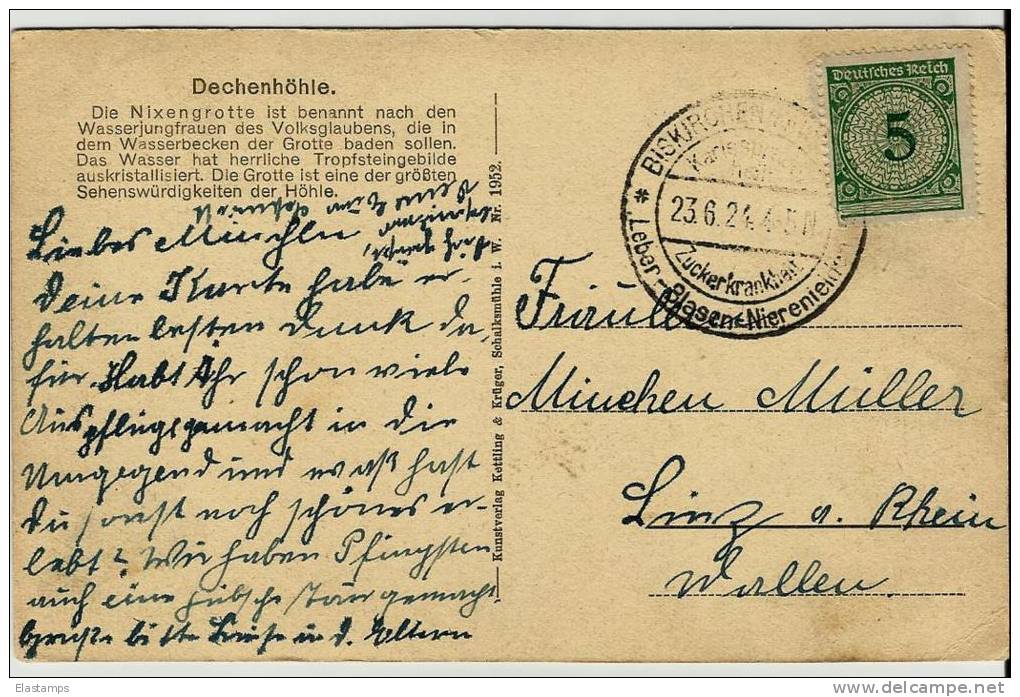 Dechenhöhle.
Die Nixengrotte ist benannt nach den
Wasserjungfrauen des Volksglaubens, die in
dem Wasserbecken der Grotte baden sollen.
Das Wasser hat herrliche Tropfsteingebilde
auskristallisiert. Die Grotte ist eine der größten
Sehenswürdigkeiten der Höhle.
Liebes Minchen
Deine Karte habe er-
halten besten Dank da-
für. Habt Ihr schon viele
Auspflüge gemacht in die
Umgegend und waß hast
du sonst noch schönes er-
lebt? Wir haben Pfingsten
auch eine hübsche Tour gemacht
Grüße bitte Luise u. d. Eltern
Kunstverlag Kettling & Krüger, Schalksmühle i. W. Nr. 1952.
Deutsches Reich
5
BISKIRCHEN
23.6.24. 4-5 N
Zuckerkrankheit
Leber-Blasen-Nierenleiden
Fräulein
Minchen Müller
Linz a. Rhein
Wallen.
Elastamps
http://www.delcampe.net